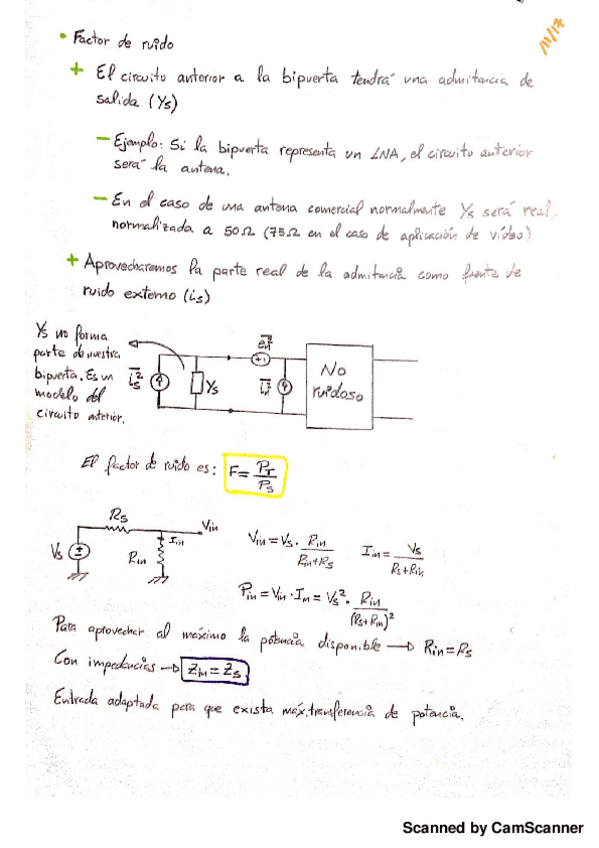 11/17
• Factor de ruido
+ El circuito anterior a la bipuerta tendrá una admitancia de
salida (Ys)
- Ejemplo: Si la bipuerta representa un LNA, el circuito anterior
será la antena.
- En el caso de una antena comercial normalmente Ys será real,
normalizada a 50Ω (75Ω en el caso de aplicación de vídeo)
+ Aprovecharemos la parte real de la admitancia como fuente de
ruido externo (is)
Ys no forma
parte de nuestra
bipuerta. Es un
modelo del
circuito anterior.
Ys
No
ruidoso
El factor de ruido es: F = PT/PS
Rs
Vin
Vs
Rin
Iin
Vin = Vs · Rin/(Rin+Rs)
Iin = Vs/(Rs+Rin)
Pin = Vin · Iin = Vs² · Rin/(Rs+Rin)²
Para aprovechar al máximo la potencia disponible → Rin = Rs
Con impedancias →
Entrada adaptada para que exista máx. transferencia de potencia.
Scanned by CamScanner